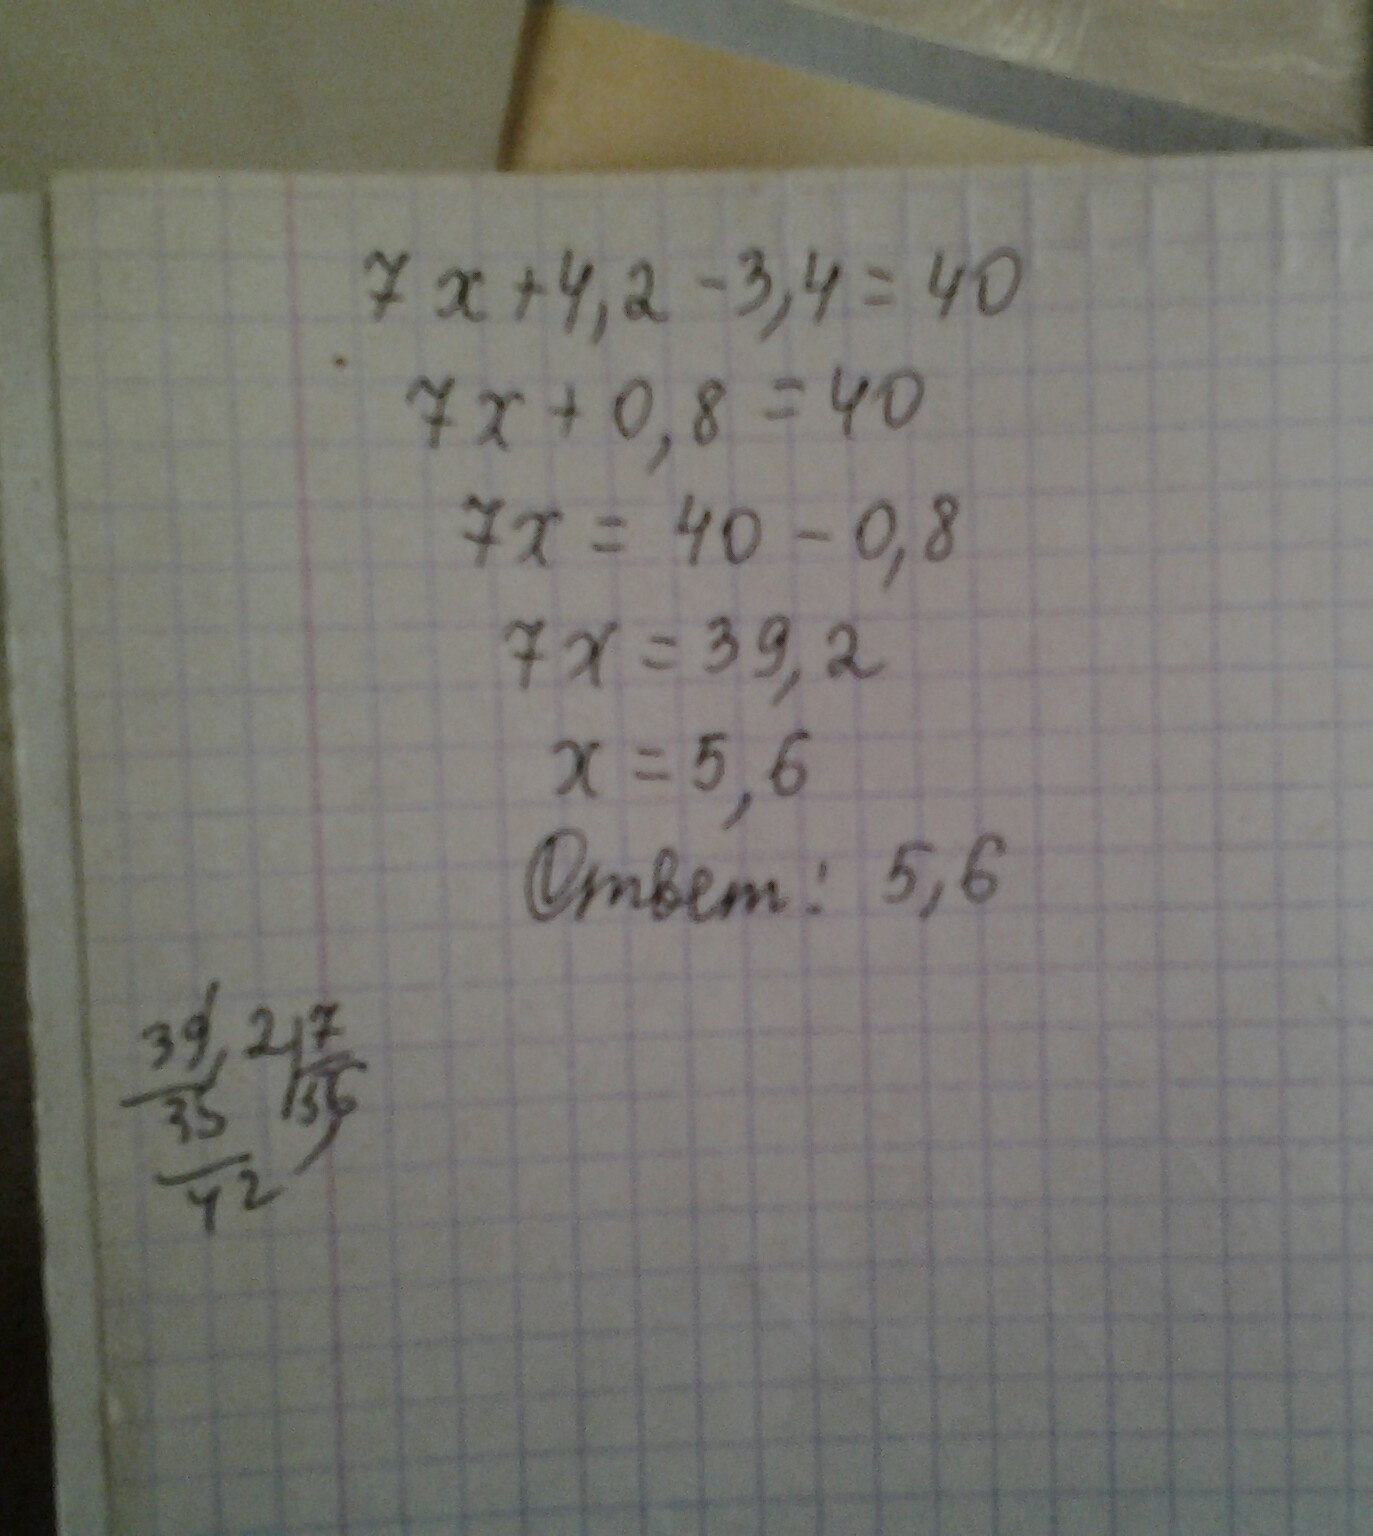 7x+4,2-3,4=40
7x+0,8=40
7x=40-0,8
7x=39,2
x=5,6
Ответ: 5,6
39,2 7
35 56
42